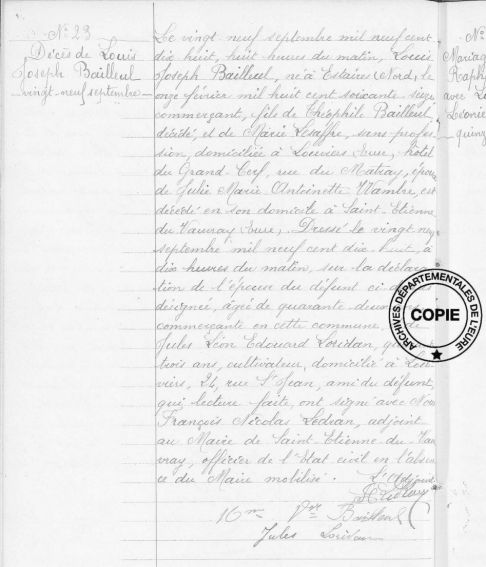 N° 23
Décès de Louis
Joseph Bailleul
vingt-neuf septembre
Le vingt neuf septembre mil neuf cent
dix huit, huit heures du matin, Louis
Joseph Bailleul, né à Estaires (Nord), le
onze février mil huit cent soixante seize
commerçant, fils de Théophile Bailleul,
décédé, et de Marie Lesaffre, sans profes-
sion, domiciliée à Louviers Eure, hôtel
du Grand-Cerf, rue du Matray, époux
de Julie Marie Antoinette Wambre, est
décédé en son domicile à Saint-Etienne
du Vauvray Eure. Dressé le vingt neuf
septembre mil neuf cent dix-huit, à
dix heures du matin, sur la déclara-
tion de l'épouse du défunt ci-
désignée, âgée de quarante-deux
commerçante en cette commune,
Jules Léon Edouard Loridan,
trois ans, cultivateur, domicilié à Lou-
viers, 26, rue St Jean, ami du défunt,
qui, lecture faite, ont signé avec Nous
François Nicolas Ledran, adjoint
au Maire de Saint-Etienne-du-Vau
vray, officier de l'Etat civil en l'absen
ce du Maire mobilisé. L'Adjoint
Bailleul
Jules Loridan
N°
Mariag
Raph
avec
Léonie
quinz
ARCHIVES DÉPARTEMENTALES DE L'EURE
COPIE